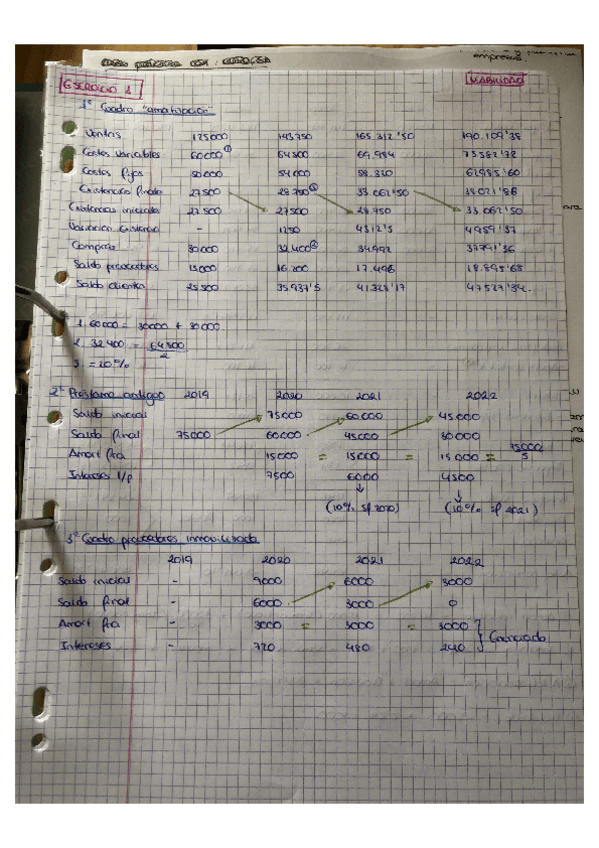 empresas.
EJERCICIO 1 VIABILIDAD
1º Cuadro "amortización"
Ventas 125000 143750 165.312'50 190.109'38
Costes variables 60000① 64800 69.984 75582'72
Costes fijos 50000 54000 58.320 62985'60
Existencias finales 27500 28.750③ 33.062'50 38021'88
Existencias iniciales 27500 28.750 33.062'50
Variación existencias - 1250 4312'5 4959'37
Compras 30000 32.400② 34992 37791'36
Saldo proveedores 15000 16.200 17.496 18.895'68
Saldo clientes 35937'5 41.328'17 47527'34.
1. 60000 = 30000 + 30000.
2. 32400 = 64800
2
3. = 20%
2º Préstamo antiguo 2019 2020 2021 2022
Saldo inicial 75000 60000 45000
Saldo final 75000 60000 45000 30000
Amort fra 15000 = 15000 = 15000 = 75000
5
Intereses l/p 7500 6000 4500
(10% Sf 2020) (10% Sf 2021)
3º Cuadro proveedores inmovilizado
2019 2020 2021 2022
Saldo inicial - 9000 6000 3000
Saldo final - 6000 3000 0
Amort fra - 3000 = 3000 = 3000
Intereses - 720 480 240